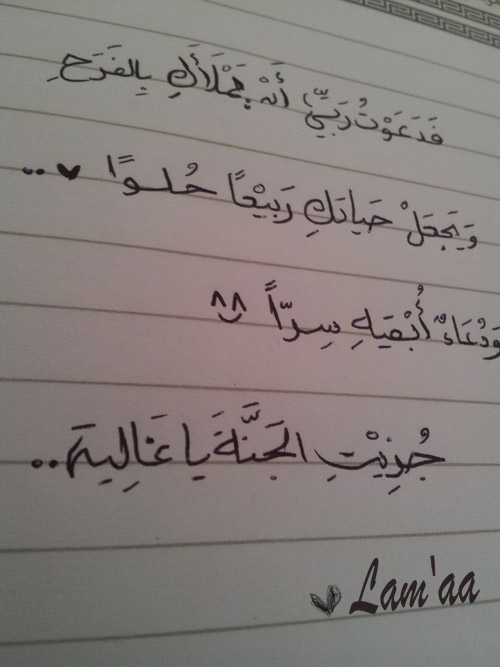 فَدَعَوْتُ رَبِّيَ أَنْ يَمْلَأَكِ بِالفَرَحِ
وَيَجْعَلْ حَيَاتَكِ رَبِيْعًا حُلـوًا ♥..
وَدُعَاءٌ أُبْقيَهِ سِرّاً ^^
جُزِيْتِ الجَنَّةَ يا غَالِيـة..
Lam'aa